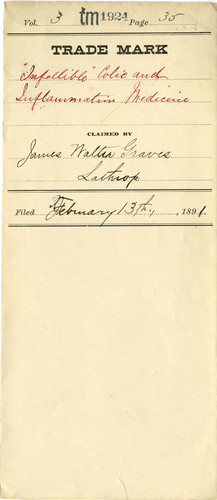 Vol. 3 tm 1924 Page 35
TRADE MARK
"Infallible" Colic and
Inflammation Medicine
CLAIMED BY
James Walter Graves
Lathrop
Filed February 13th, 1891.